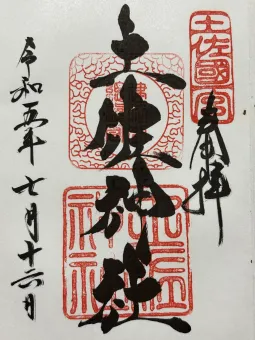 土佐國一宮
奉拝
土佐神社
令和五年七月十六日